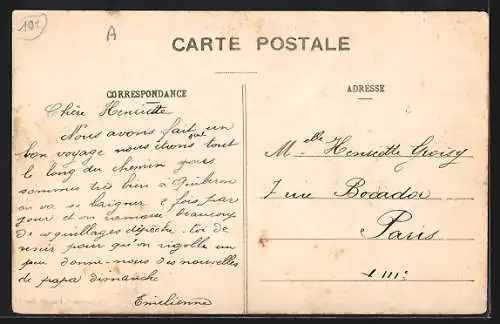 102
A
CARTE POSTALE
CORRESPONDANCE
ADRESSE
Chère Henriette
Nous avons fait un
bon voyage nous étions tout
le long du chemin
sommes très bien à Quiberon
on va se baigner 2 fois par
jour et on ramasse beaucoup
de coquillages dépêche-toi de
venir pour qu'on rigolle un
peu donne-nous des nouvelles
de papa dimanche
Emelienne
Melle Henriette
7 rue Bocador
Paris